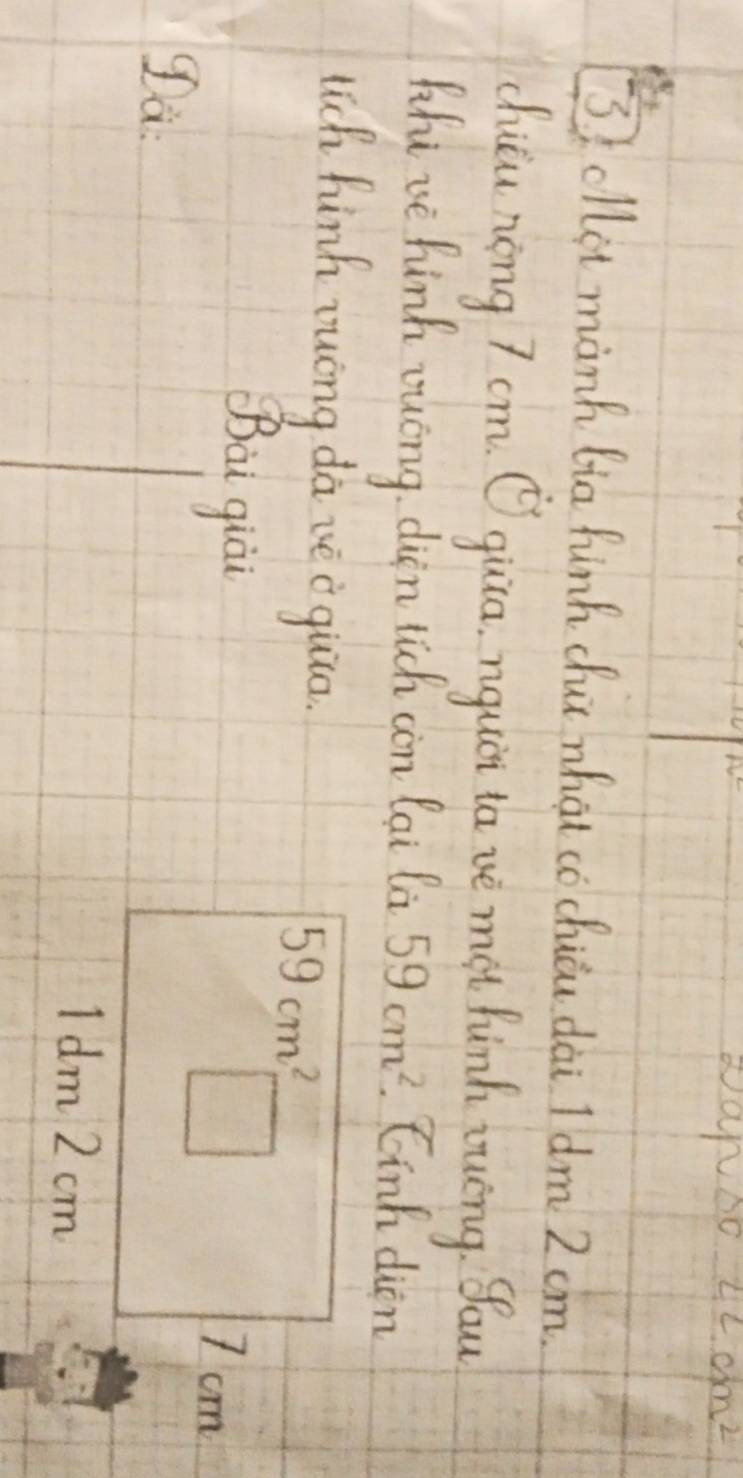 3. Một mảnh bìa hình chữ nhật có chiều dài 1dm 2cm,
chiều rộng 7cm. Ở giữa, người ta vẽ một hình vuông. Sau
khi vẽ hình vuông, diện tích còn lại là 59cm². Tính diện
tích hình vuông đã vẽ ở giữa.
Bài giải
Đổi:
59cm²
7cm
1dm 2cm